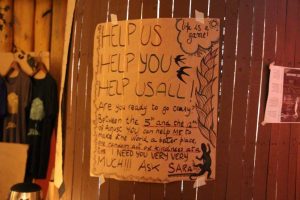 Life is a
game!
HELP US
HELP YOU
HELP US ALL!
Are you ready to go crazy?
Between the 5th and the
of August you can help me to
make the world a better place,
one random act of kindness at a
time. I NEED YOU VERY VERY
MUCH!!! ASK SARA